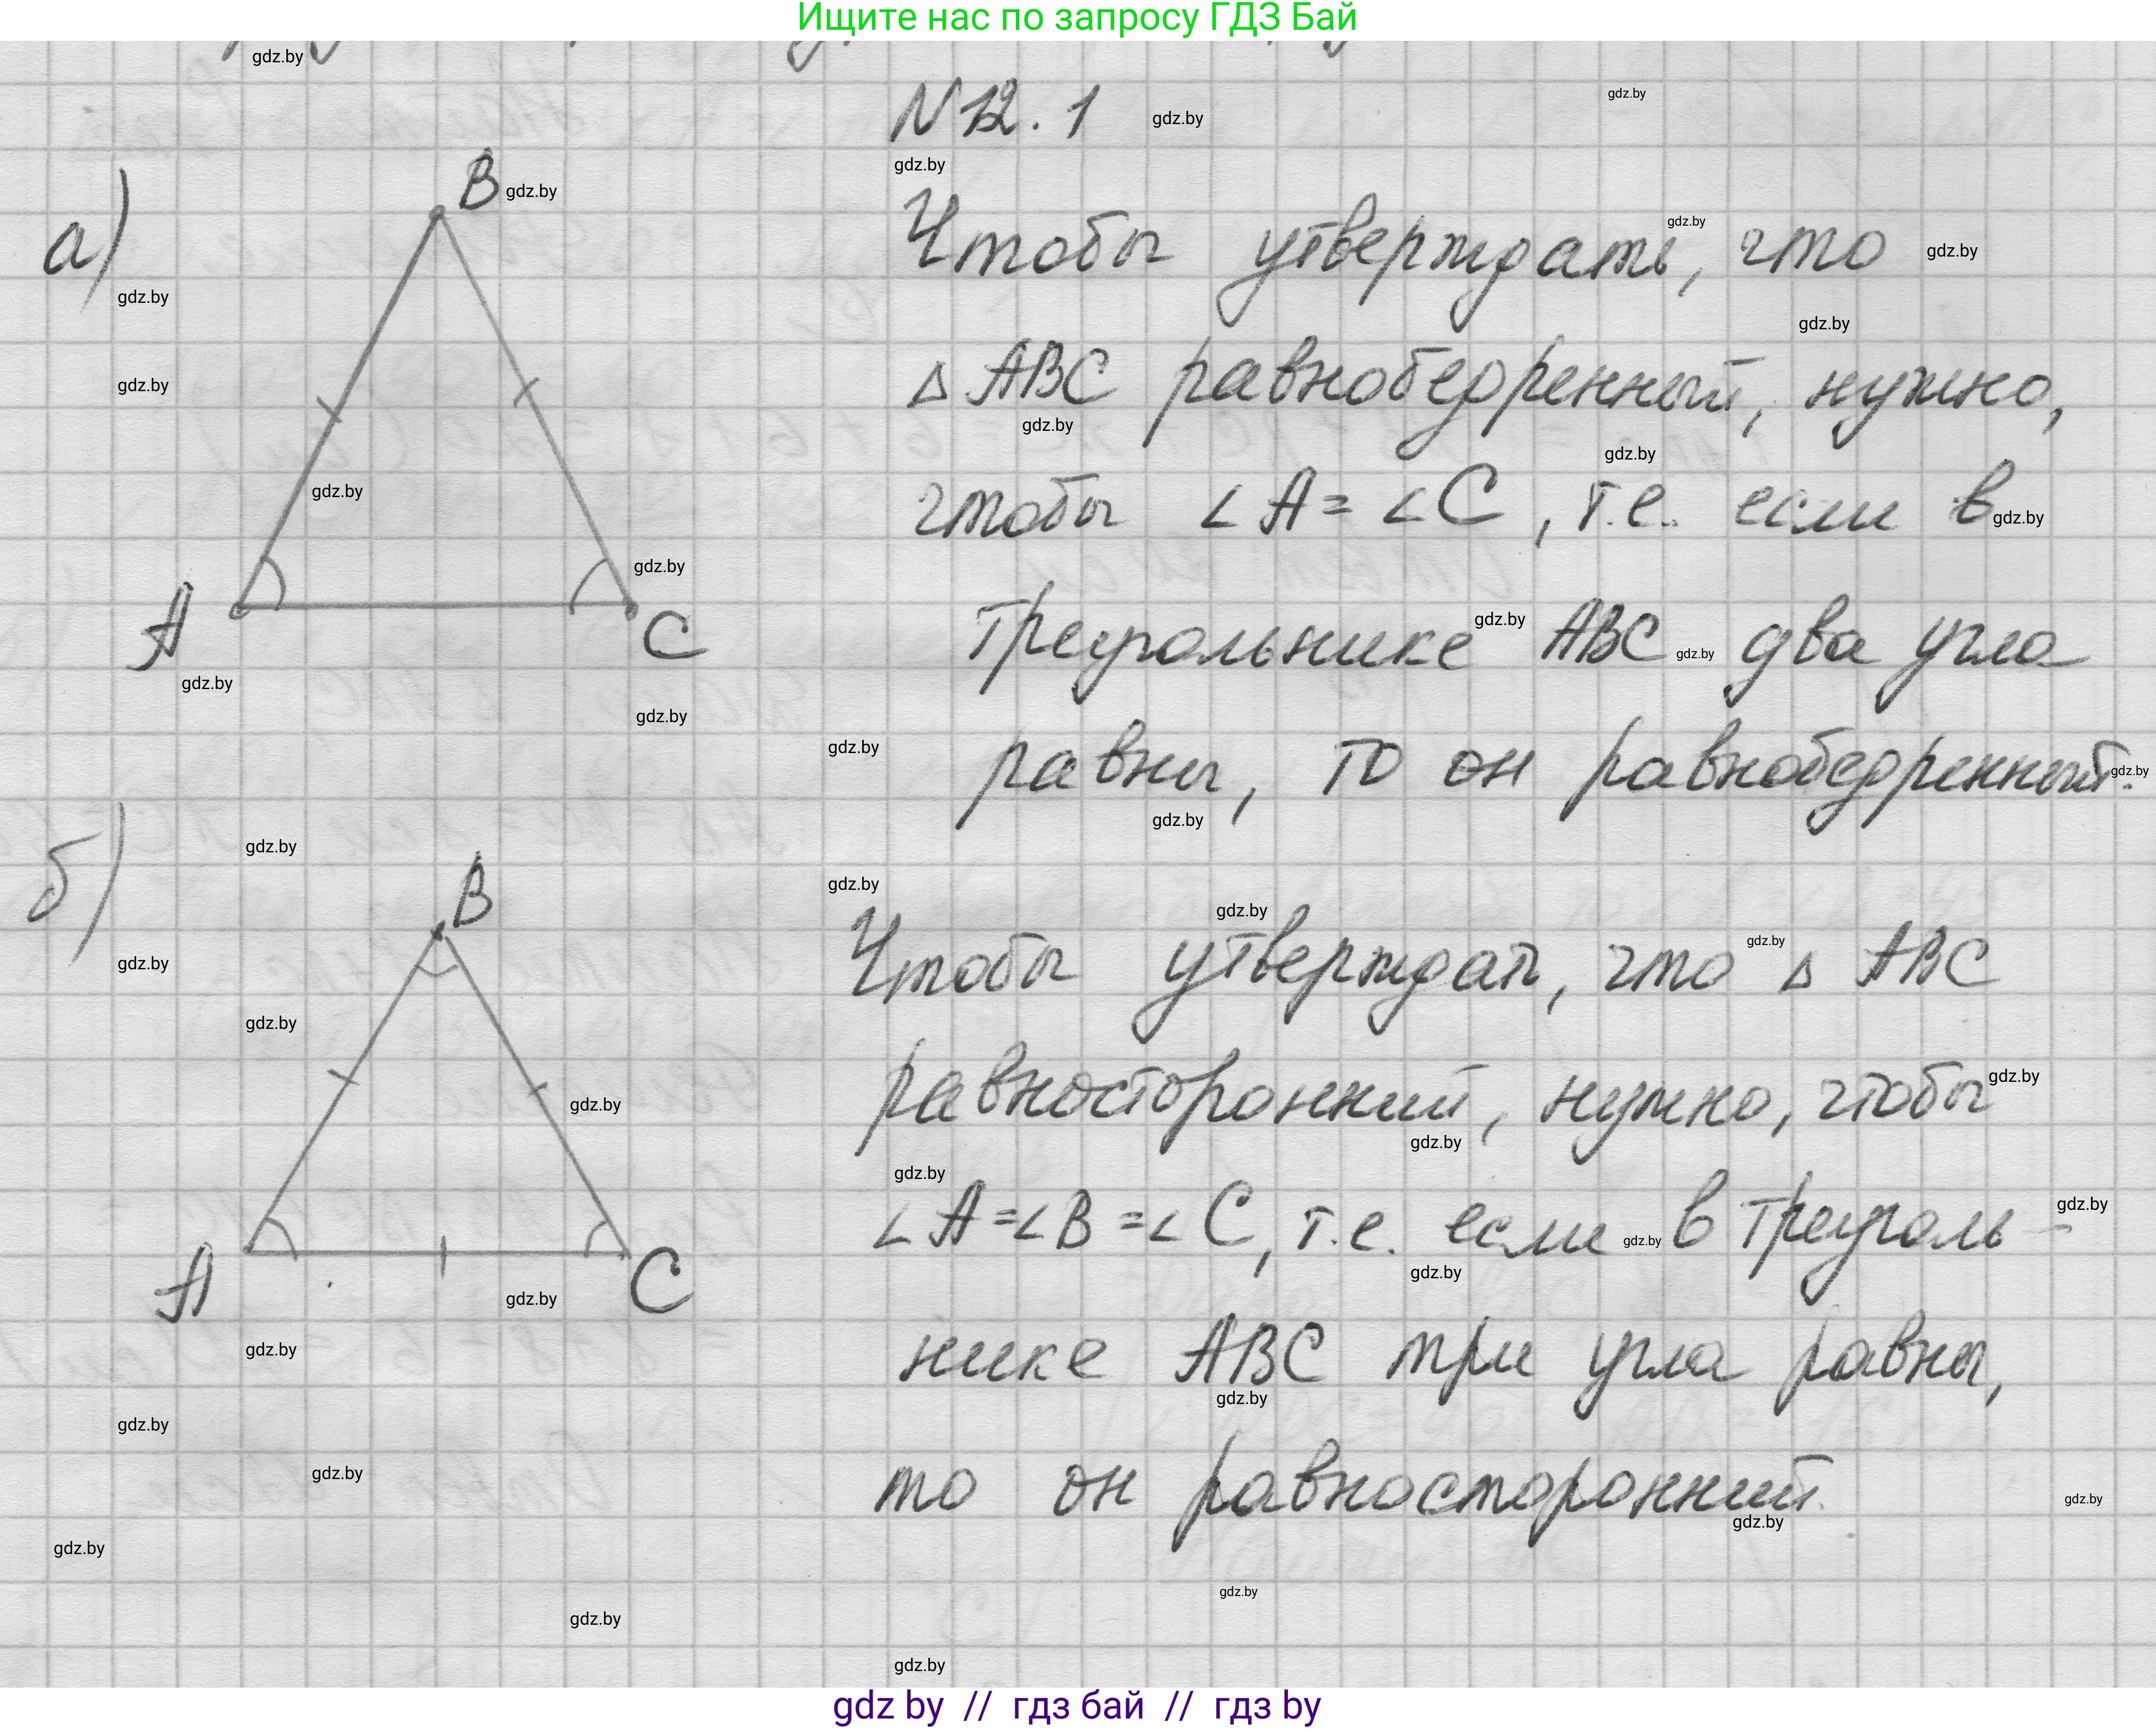 Ищите нас по запросу ГДЗ Бай
N 12.1
а)
B
A
C
Чтобы утверждать, что
△ ABC равнобедренный, нужно,
чтобы ∠A = ∠C, т.е. если в
треугольнике ABC два угла
равны, то он равнобедренный.
б)
B
A
C
Чтобы утверждать, что △ ABC
равносторонний, нужно, чтобы
∠A = ∠B = ∠C, т.е. если в треуголь-
нике ABC три угла равны,
то он равносторонний.
gdz.by
gdz by // гдз бай // гдз by